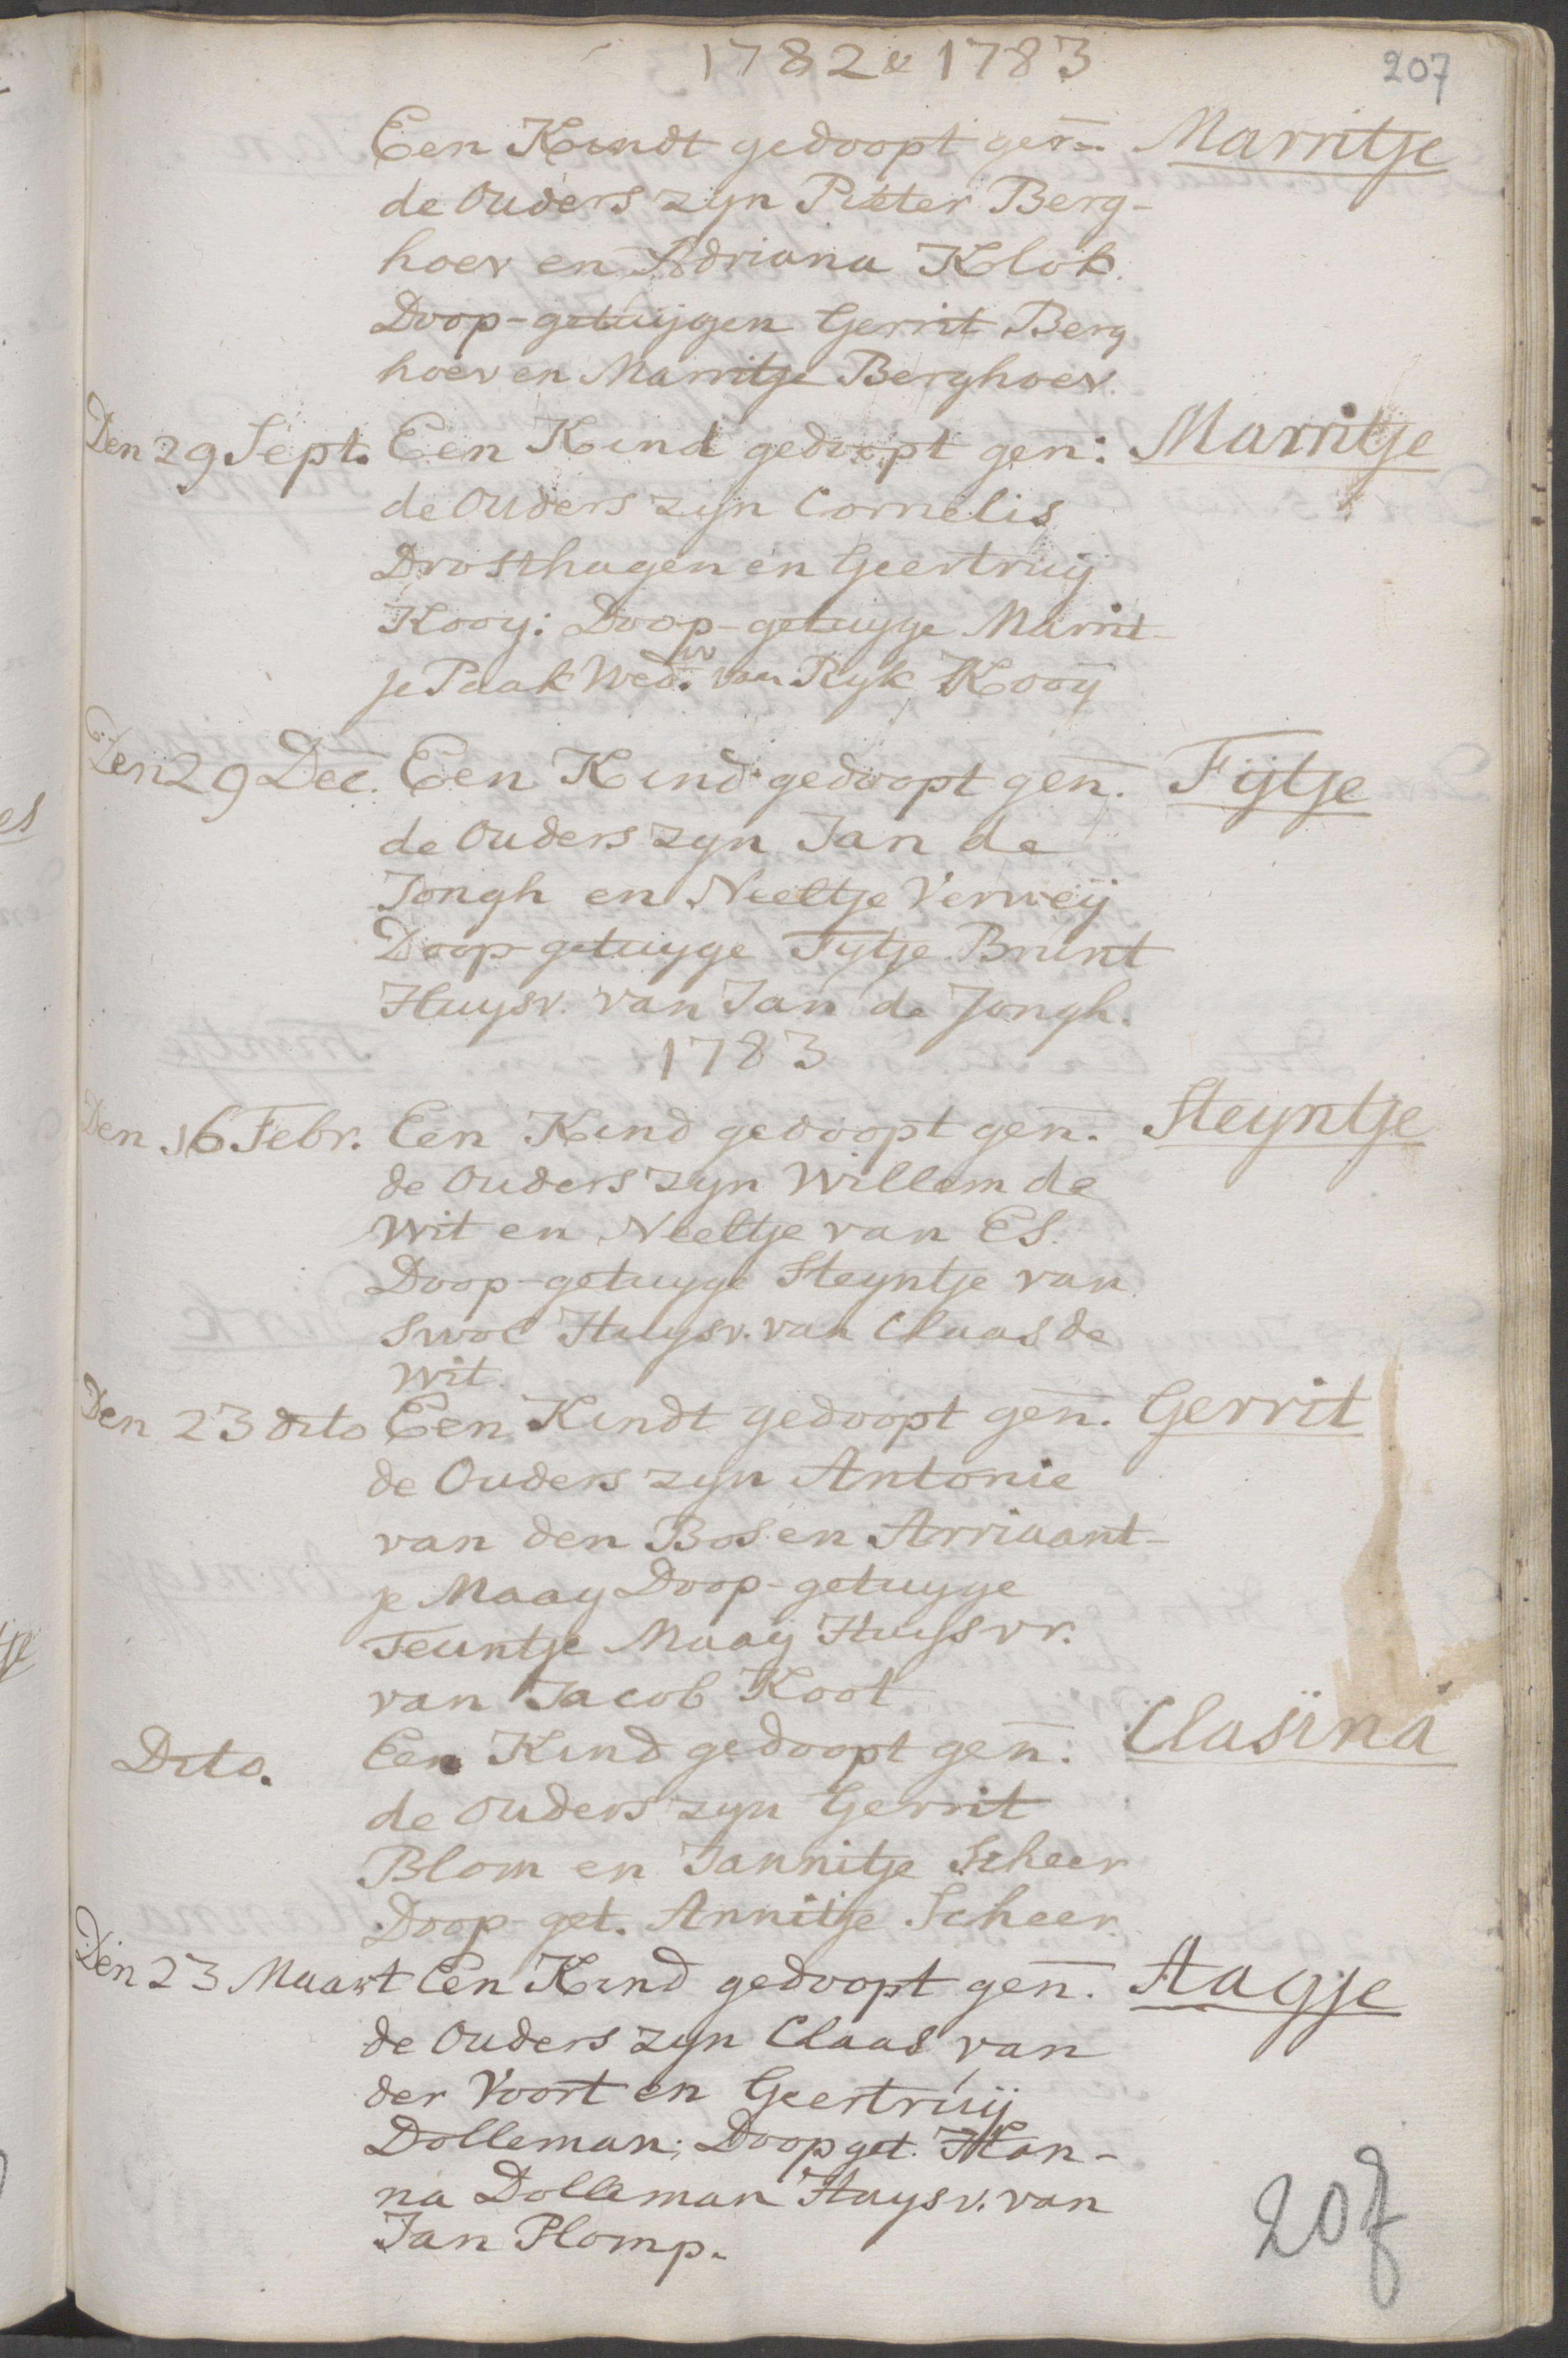 1782 & 1783
207
Een Kindt gedoopt gen̄. Marritje
de Ouders zyn Pieter Berg-
hoev en Adriana Klok.
Doop-getuijgen Gerrit Berg
hoev en Marritje Berghoev.
Den 29 Sept. Een Kind gedoopt gen: Marritje
de Ouders zyn Cornelis
Drosthagen en Geertruij
Kooy: Doop-getuyge Marrit-
je Paak Wed.w van Ryk Kooij
Den 29 Dec. Een Kind gedoopt gen̄. Fijtje
de Ouders zyn Jan de
Jongh en Neeltje Verweij
Doop-getuyge Fytje Brunt
Huysv. van Jan de Jongh.
1783
Den 16 Febr. Een Kind gedoopt gen̄. Steyntje
de Ouders zyn Willem de
Wit en Neeltje van ES.
Doop-getuyge Steyntje van
Swol Huysv. van Claas de
Wit.
Den 23 dito Een Kindt gedoopt gen̄. Gerrit
de Ouders zyn Antonie
van den Bos en Arriaant-
je Maay Doop-getuyge
Teuntje Maaij Huysvr.
van Jacob Koot
Dito. Een Kind gedoopt gen̄. Clasina
de ouders zyn Gerrit
Blom en Jannitje Scheer
Doop-get. Annitje Scheer.
Den 23 Maart Een Kind gedoopt gen̄. Aagje
de Ouders zyn Claas van
der Voort en Geertruij
Dolleman; Doopget. Han-
na Dolleman Huysv. van
Jan Plomp.
207